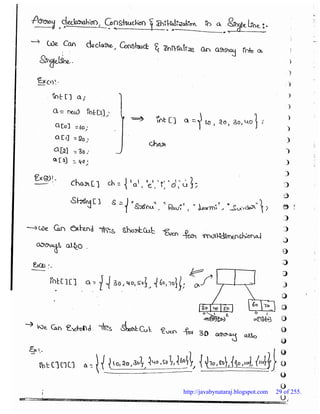 Array declaration, Construction & Initialization in a Single line:-
→ We Can declare, Construct & Initialize an array into a
Single line.
Ex(1):-
int[] a;
a = new int[3];
a[0] = 10;
a[1] = 20;
a[2] = 30;
a[3] = 40;
⇒ int[] a = {10, 20, 30, 40};
char
Ex(2):-
char[] ch = {'a', 'e', 'i', 'o', 'u'};
String[] s = {"Srinu", "Ravi", "Laxmi", "Sundar"};
→ we Can extend this shortcut Even for multidimensional
arrays also.
Ex(3):-
int[][] a = {{30,40,50}, {60,70}}; a
→ We Can Extend this Short Cut Even for 3D array also
Ex:-
int[][][] a = {{{10,20,30}, {40,50}, {60}}, {{70,80}, {90,100}, {110}}}
http://javabynataraj.blogspot.com 29 of 255.